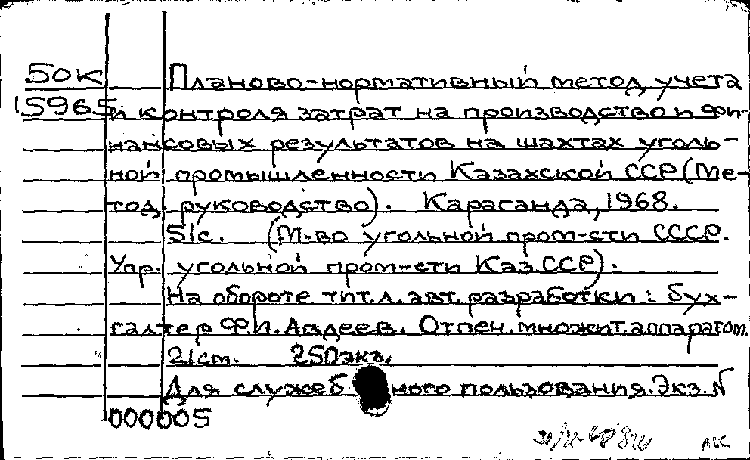 50К Планово-нормативный метод учета
15965 и контроля затрат на производство и фи-
нансовых результатов на шахтах уголь-
ной промышленности Казахской ССР (Ме-
тод. руководство). Караганда, 1968.
51с. (М-во угольной пром-сти СССР.
Упр. угольной пром-сти Каз.ССР).
На обороте тит.л. авт. разработки: бух-
галтер Ф.И. Авдеев. Отпеч. множит. аппаратом.
21см. 250экз.
Для служебного пользования. Экз. N
000005